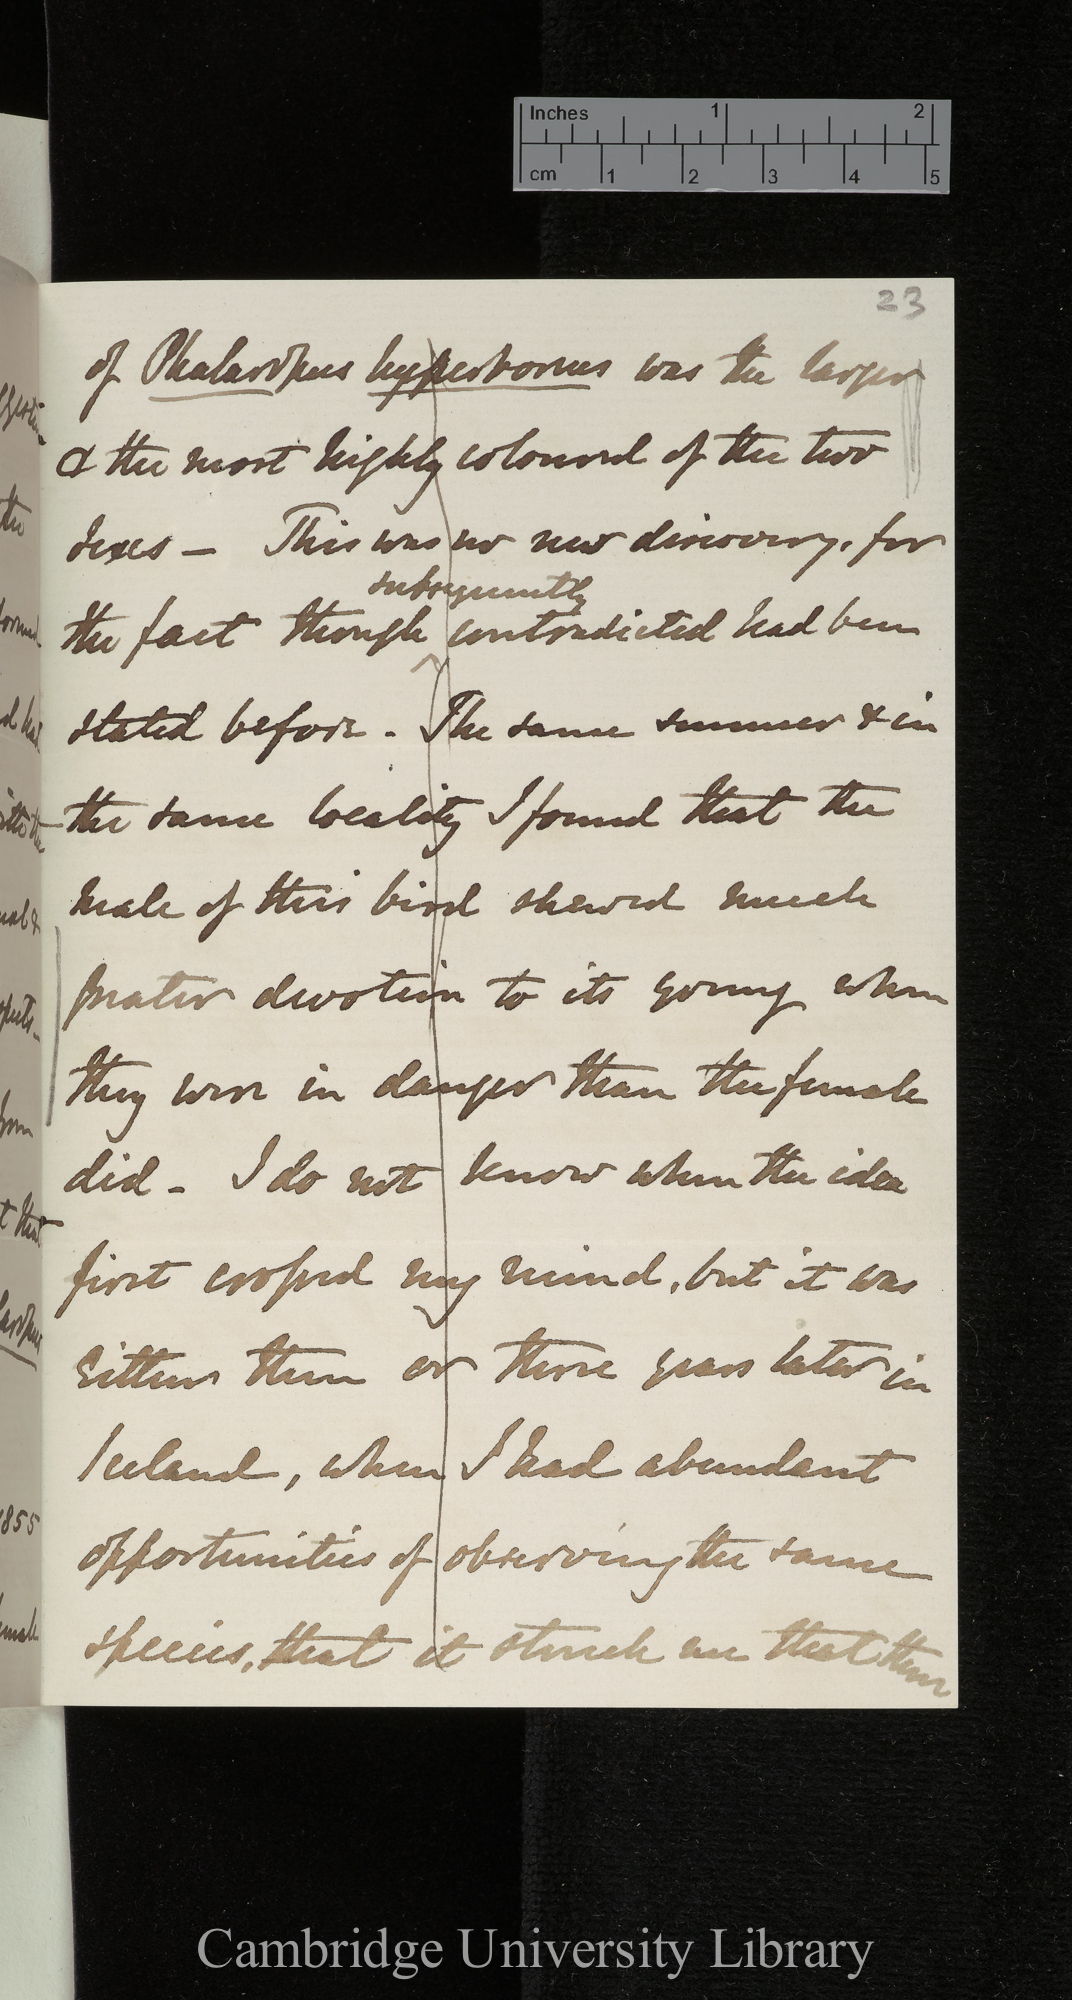 Inches 1 2
cm 1 2 3 4 5
23
of Phalaropus hyperboreus was the larger
& the most highly coloured of the two
sexes — This was no new discovery, for
subsequently
the fact though contradicted had been
stated before. The same summer & in
the same locality I found that the
male of this bird shewed much
greater devotion to its young when
they were in danger than the female
did - I do not know when the idea
first crossed my mind, but it was
either then or three years later in
Iceland, when I had abundant
opportunities of observing the same
species, that it struck me that there
1855
Cambridge University Library